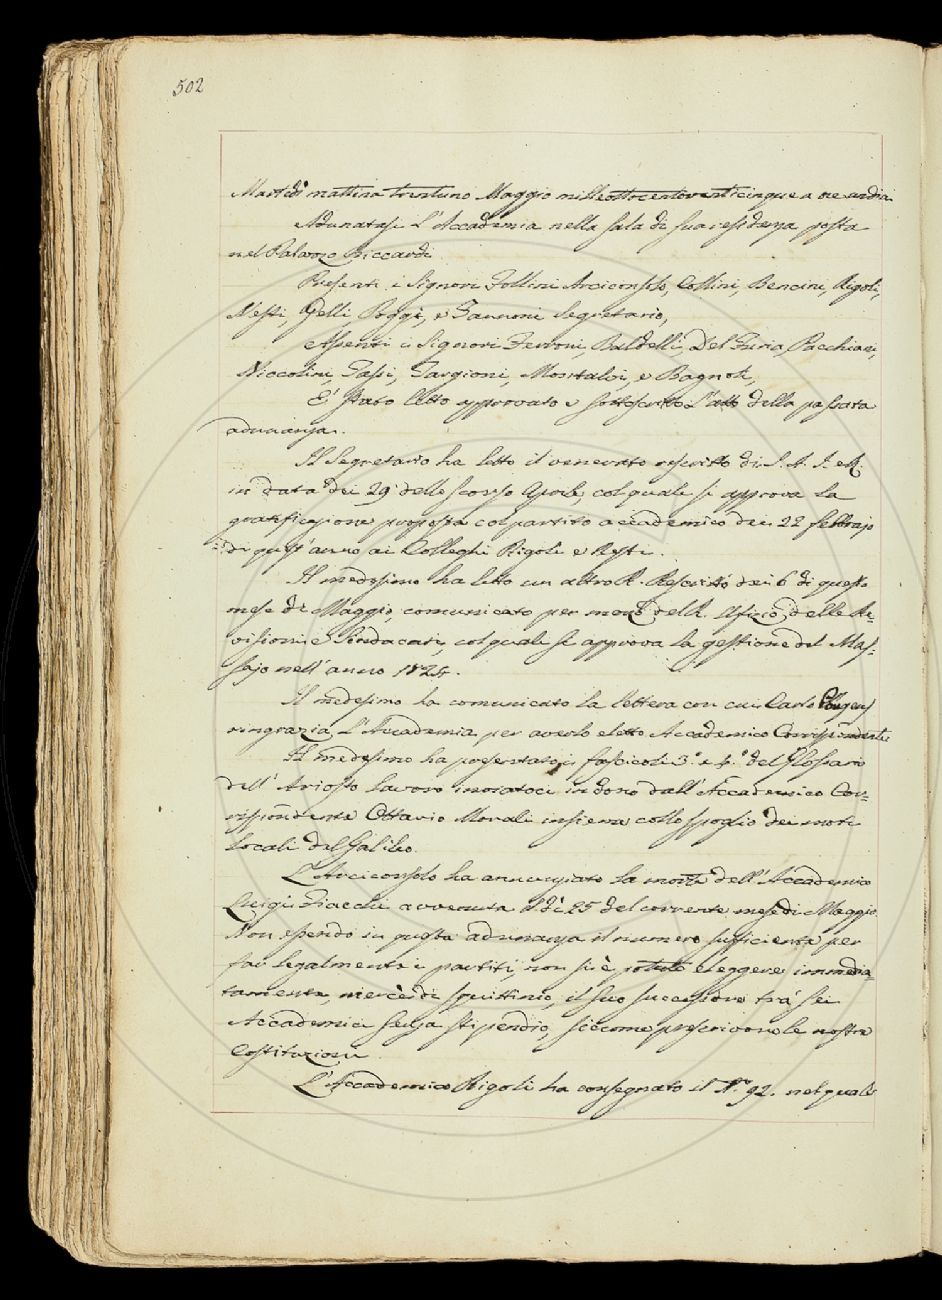 502
Martedì mattina trentuno Maggio milleottocentoventicinque a ore undici
Adunatasi l'Accademia nella sala di sua residenza posta
nel Palazzo Riccardi
Presenti i Signori Follini Arciconsolo, Collini, Bencini, Rigoli,
Nesti, Gelli, Poggi, e Zannoni Segretario,
Assenti i Signori Ferroni, Baldelli, Del Furia, Pacchiani,
Niccolini, Tassi, Targioni, Montalvi, e Bagnoli,
E' stato letto approvato e sottoscritto l'atto della passata
adunanza.
Il Segretario ha letto il venerato rescritto di S. A. I. e R.
in data dei 29 dello scorso Aprile, col quale si approva la
gratificazione proposta col partito accademico dei 22 febbrajo
di quest'anno ai Colleghi Rigoli e Nesti.
Il medesimo ha letto un altro R. Rescritto dei 6 di questo
mese di Maggio, comunicato per mezzo del R. Ufizio delle Re-
visioni e Sindacati, col quale si approva la gestione del Mas-
sajo nell'anno 1824.
Il medesimo ha comunicato la lettera con cui Carlo Pougens
ringrazia l'Accademia per averlo eletto Accademico Corrispondente
Il medesimo ha presentato i fascicoli 3.° e 4.° del Glossario
dell'Ariosto lavoro inviatoci in dono dall'Accademico Cor-
rispondente Ottavio Morali insieme collo spoglio dei modi
locali del Galileo.
L'Arciconsolo ha annunziato la morte dell'Accademico
Luigi Fiacchi avvenuta il dì 25 del corrente mese di Maggio.
Non essendo in questa adunanza il numero sufficiente per
far legalmente i partiti, non si è potuto eleggere immedia-
tamente, mercè di squittinio, il suo successore tra' sei
Accademici senza stipendio, siccome prescrivono le nostre
Costituzioni.
L'Accademico Rigoli ha consegnato il N.° 92. nel quale